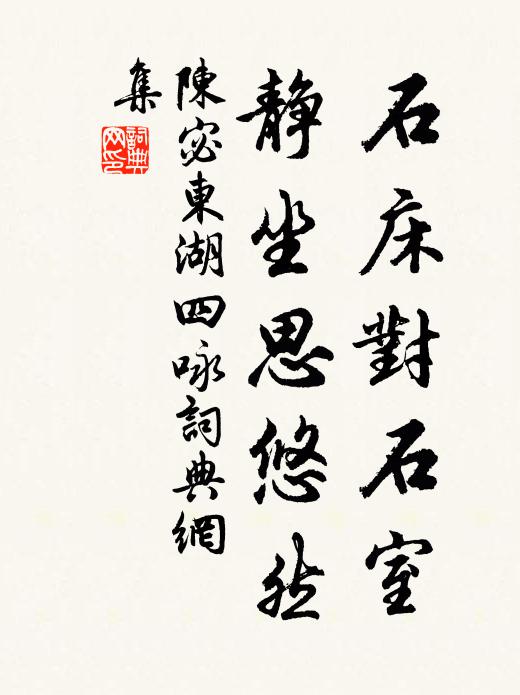 石床對石室
靜坐思悠然
陳宓東湖四咏詞典網
集
詞典网印